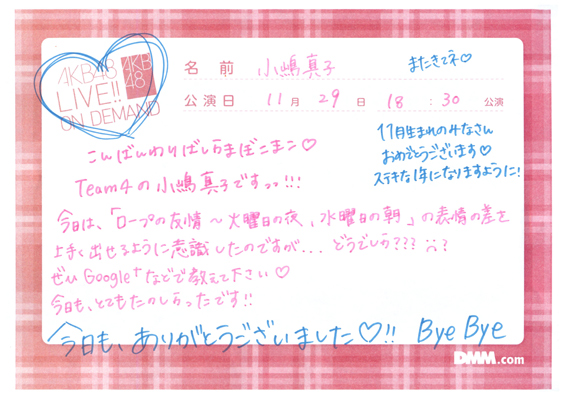 AKB48
LIVE!!
ON DEMAND
AKB
48
名 前 小嶋真子
またきてネ♡
公演日 11月 29日 18:30 公演
11月生まれのみなさん
おめでとうございます♡
ステキな1年になりますように!
こんばんわりばしらまぼこまこ♡
Team4の小嶋真子ですッッ!!!
今日は、「ロープの友情 〜火曜日の夜、水曜日の朝」の表情の差を
上手く出せるように意識したのですが... どうでしょう???
ぜひ Google+などで教えて下さい♡
今日も、とてもたのしかったです!!
今日も、ありがとうございました♡!! Bye Bye
DMM.com